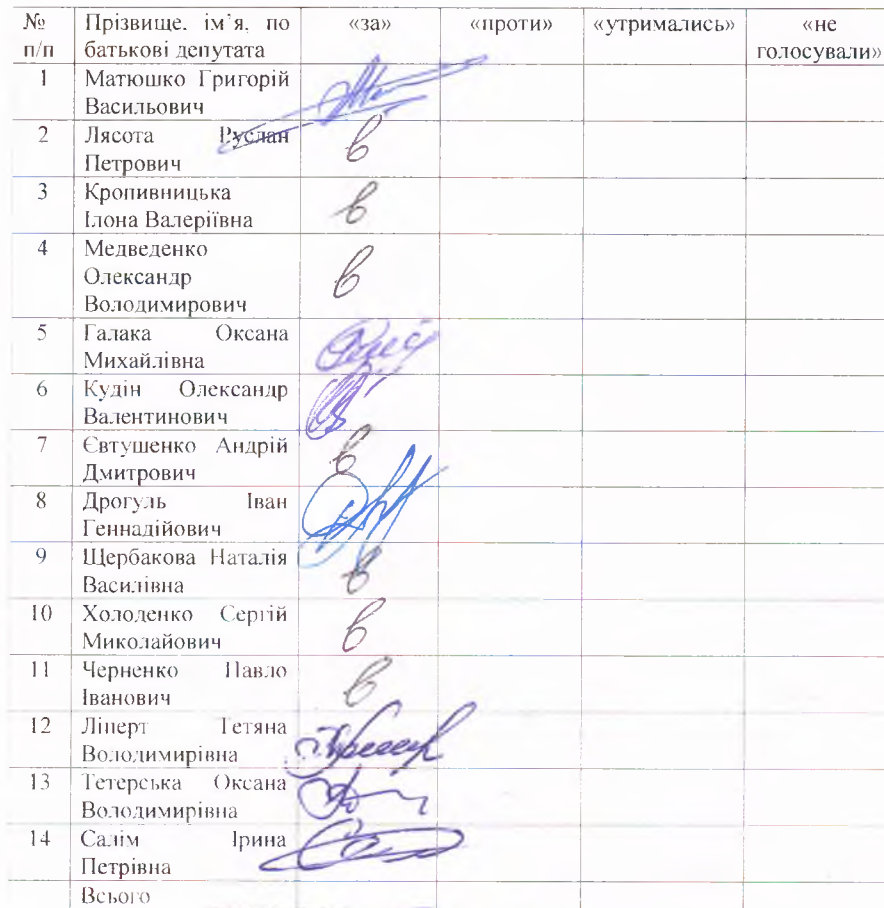 № п/п Прізвище, ім’я, по батькові депутата «за» «проти» «утримались» «не голосували»
1 Матюшко Григорій
Васильович
2 Лясота Руслан в
Петрович
3 Кропивницька в
Ілона Валеріївна
4 Медведенко
Олександр в
Володимирович
5 Галака Оксана
Михайлівна
6 Кудін Олександр
Валентинович
7 Євтушенко Андрій в
Дмитрович
8 Дрогуль Іван
Геннадійович
9 Щербакова Наталія в
Василівна
10 Холоденко Сергій в
Миколайович
11 Черненко Павло в
Іванович
12 Ліперт Тетяна
Володимирівна
13 Тетерська Оксана
Володимирівна
14 Салім Ірина
Петрівна
Всього